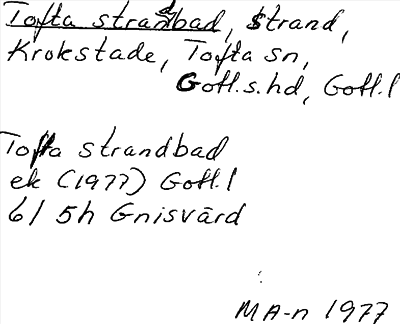 Tofta strandbad, Strand,
Krokstade, Tofta sn,
Gotl.s.hd, Gotl.l
Tofta strandbad
ek (1977) Gotl.l
6I 5h Gnisvärd
MA-n 1977